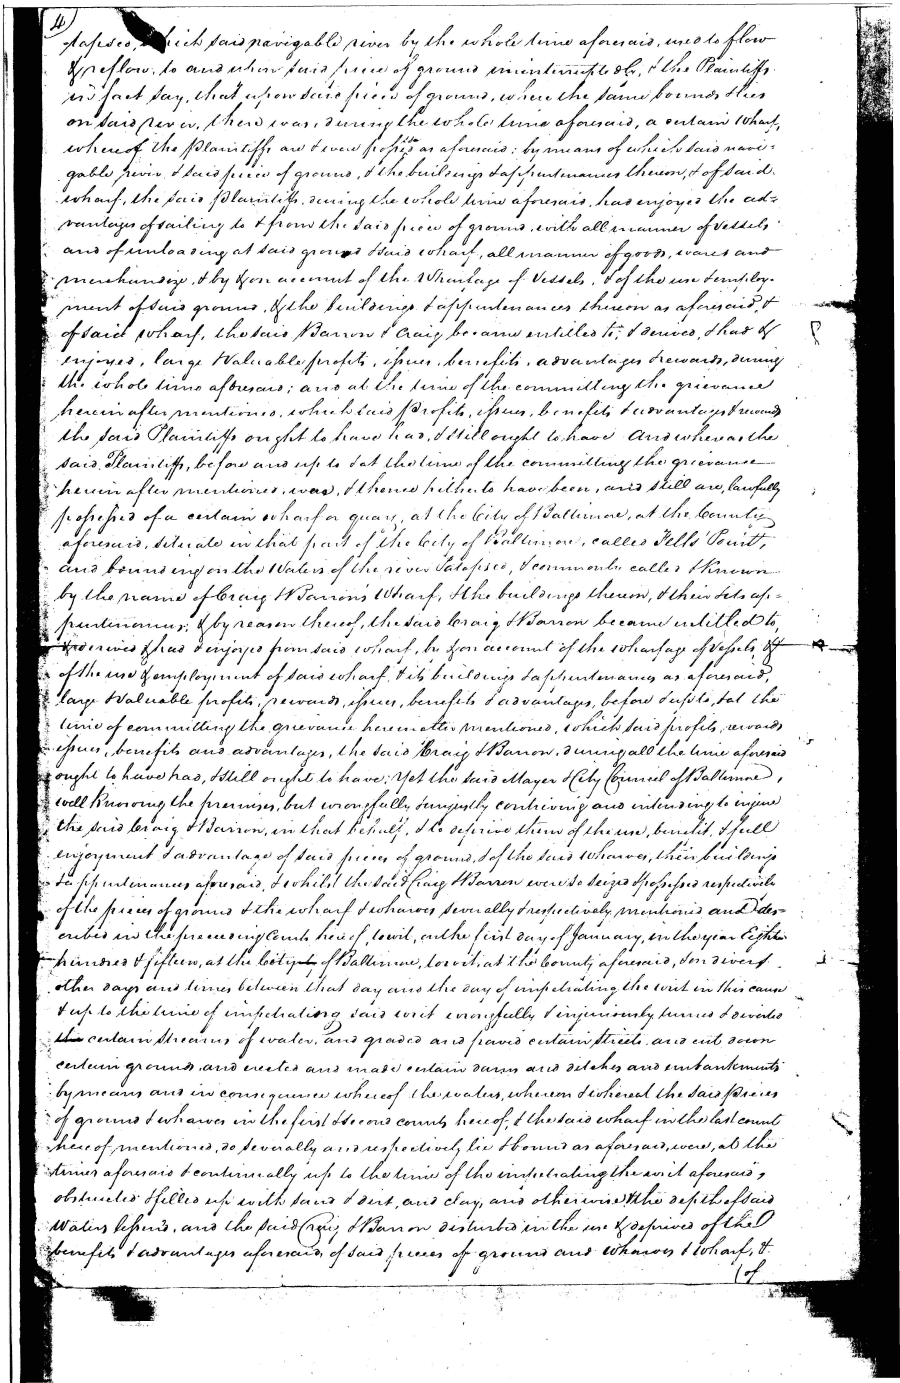 4
tapsco, which said navigable river by the whole time aforesaid, used to flow
& reflow, to and upon said piece of ground uninterruptedly, & the Plaintiffs
in fact say, that upon said piece of ground, where the same bounds & lies
on said river, there was, during the whole time aforesaid, a certain Wharf,
whereof the Plaintiffs are & were possessed as aforesaid; by means of which said navi-
gable river, & said piece of ground, & the buildings & appurtenances thereon, & of said
wharf, the said Plaintiffs, during the whole time aforesaid, had enjoyed the ad-
vantages of sailing to & from the said piece of ground, with all manner of vessels
and of unloading at said ground & said wharf, all manner of goods, wares and
merchandize, & by & on account of the Wharfage of Vessels, & of the use & employ-
ment of said ground, & the buildings & appurtenances thereon as aforesaid, &
of said wharf, the said Barron & Craig became entitled to, & derived, & had &
enjoyed, large & valuable profits, issues, benefits, advantages & rewards, during
the whole time aforesaid; and at the time of the committing the grievance
herein after mentioned, which said profits, issues, benefits & advantages & rewards
the said Plaintiffs ought to have had, & still ought to have And whereas the
said Plaintiffs, before and up to & at the time of the committing the grievance
herein after mentioned, was, & thence hitherto have been, and still are, lawfully
possessed of a certain wharf or quay, at the City of Baltimore, at the County
aforesaid, situate in that part of the City of Baltimore, called Fells' Point,
and bounding on the Waters of the river Patapsco, & commonly called & known
by the name of Craig & Barron's Wharf, & the buildings thereon, & their & its ap-
purtenances; & by reason thereof, the said Craig & Barron became entitled to,
& derived & had & enjoyed from said wharf, by & on account of the wharfage of Vessels, &
of the use & employment of said wharf, & its buildings & appurtenances as aforesaid,
large & valuable profits, rewards, issues, benefits & advantages, before & up to, & at the
time of committing the grievance hereinafter mentioned, which said profits, rewards
issues, benefits and advantages, the said Craig & Barron, during all the time aforesaid
ought to have had, & still ought to have; Yet the said Mayor & City Council of Baltimore,
well knowing the premises, but wrongfully & unjustly contriving and intending to injure
the said Craig & Barron, in that behalf, & to deprive them of the use, benefit, & full
enjoyment & advantage of said pieces of ground, & of the said wharves, their buildings
& appurtenances aforesaid, & whilst the said Craig & Barron were so seized & possessed respectively
of the pieces of ground & the wharf & wharves severally & respectively mentioned and des-
cribed in the preceeding Counts hereof, towit, on the first day of January, in the year Eighteen
hundred & fifteen, at the City of Baltimore, towit, at the County aforesaid, & on divers
other days and times between that day and the day of impetrating the writ in this cause
& up to the time of impetrating said writ wrongfully & injuriously turned & diverted
the certain streams of water, and graded and paved certain streets, and cut down
certain grounds, and erected and made certain dams and ditches and embankments
by means and in consequence whereof the waters, whereon & whereat the said pieces
of ground & wharves in the first & second counts hereof, & the said wharf in the last count
hereof mentioned, do severally and respectively lie & bound as aforesaid, were, at the
times aforesaid & continually up to the time of the impetrating the writ aforesaid,
obstructed & filled up with sand & dirt, and clay, and otherwise & the depth of said
Waters lessened, and the said Craig & Barron disturbed in the use & deprived of the
benefits & advantages aforesaid, of said pieces of ground and wharves & wharf, &
(of